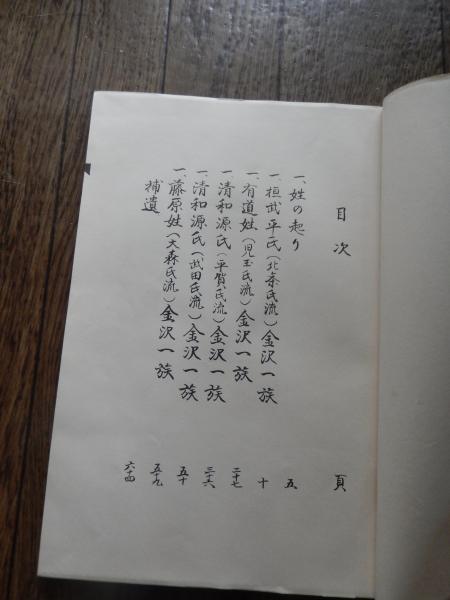 目次 頁
一、姓の起り 五
一、桓武平氏(北条氏流)金沢一族 十
一、有道姓(児玉氏流)金沢一族 二十七
一、清和源氏(平賀氏流)金沢一族 三十六
一、清和源氏(武田氏流)金沢一族 五十
一、藤原姓(大森氏流)金沢一族 五十九
補遺 六十四